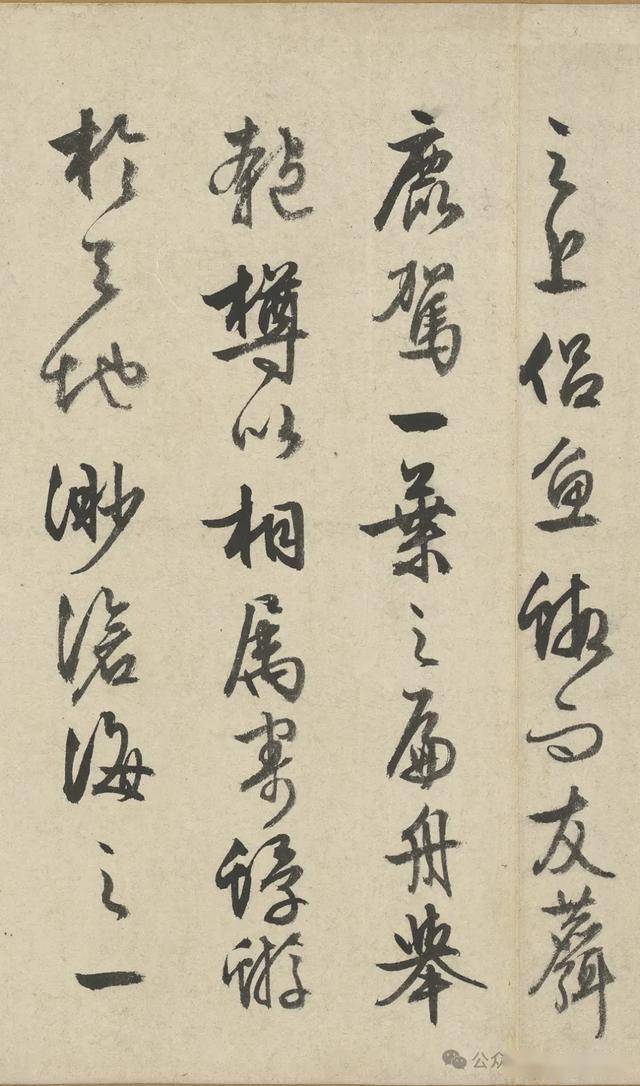 之上侣魚蝦而友麋
鹿駕一葉之扁舟舉
匏樽以相属寄蜉蝣
於天地渺滄海之一
公众